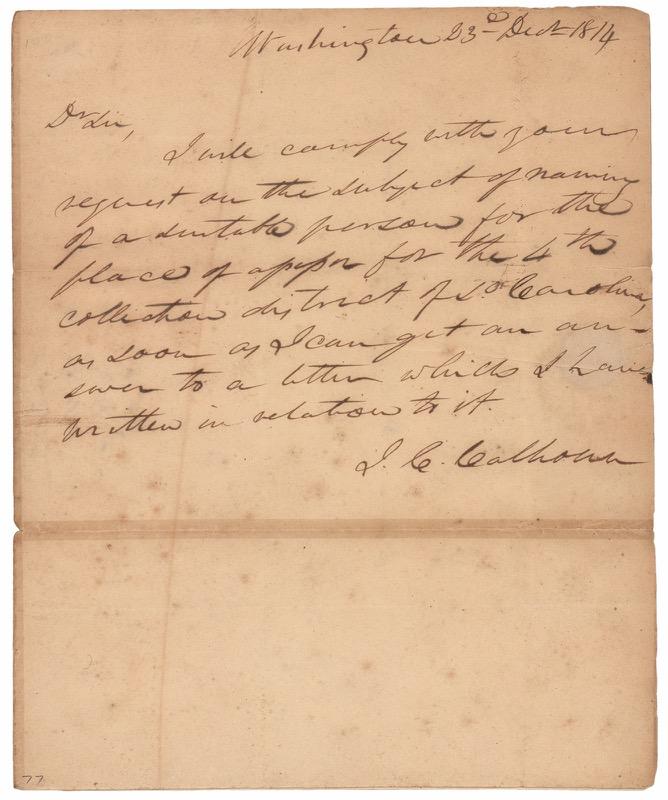 Washington 23d Decr 1814
Dr Sir,
I will comply with your
request on the subject of naming
of a suitable person for the
place of assessor for the 4th
collection district of So Carolina,
as soon as I can get an an-
swer to a letter which I have
written in relation to it.
J. C. Calhoun
77